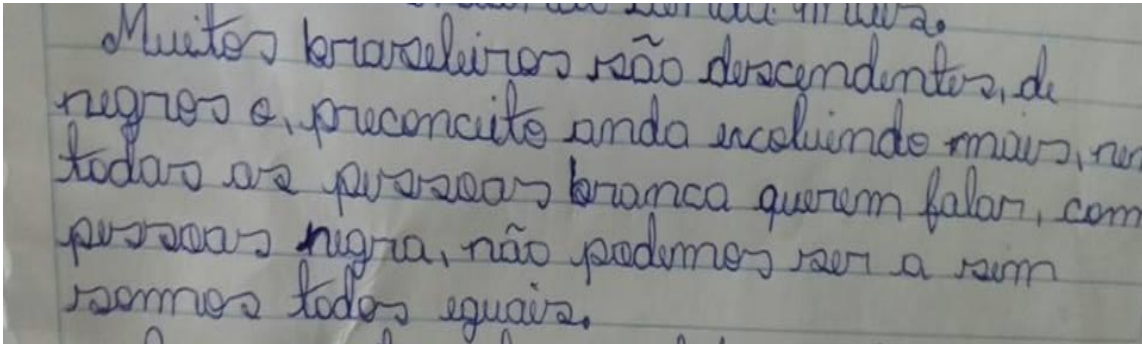 Muitos braseleiros são descendentes, de
negros e, preconceito anda encoluindo mais, nem
todas as pessoas branca querem falar, com
pessoas negra, não podemos ser a sim
sommos todos eguais.